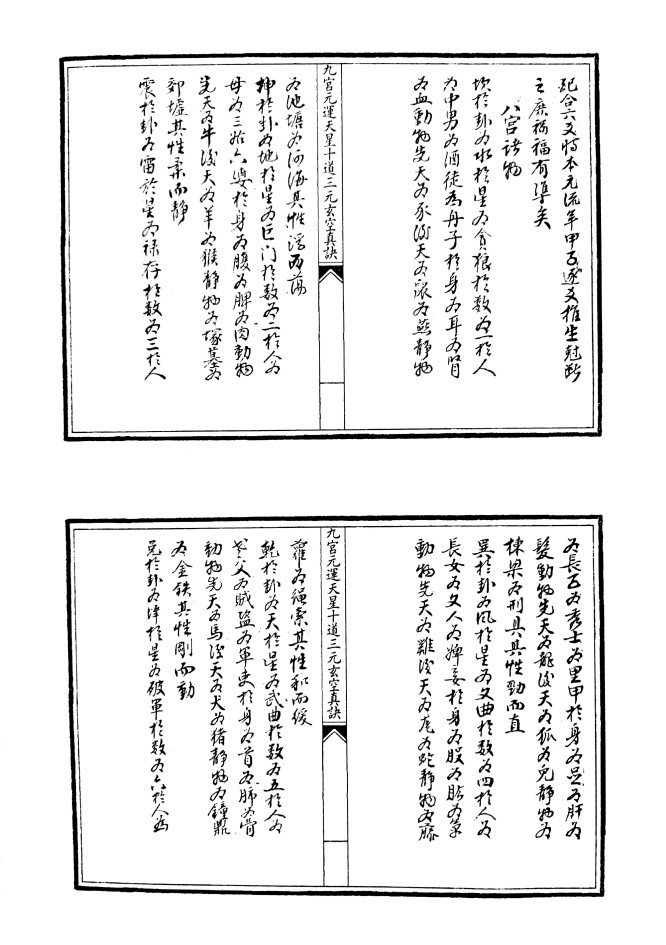 配合六爻時本元流年甲子逐爻推生尅斷
之庶禍福有準矣
八宮諸物
坎於卦為水於星為貪狼於數為一於人
為中男為酒徒為舟子於身為耳為腎
為血動物先天為豕後天為鼠為燕靜物
九宮元運天星十道三元玄空真訣
為池塘為河海其性浮而蕩
坤於卦為地於星為巨门於數為二於人為
母為三姑六婆於身為腹為脾為肉動物
先天為牛後天為羊為猴靜物為塚墓為
郊墟其性柔而靜
震於卦為雷於星為祿存於數為三於人
為長子為秀士為里甲於身為足為肝為
髮動物先天為龍後天為狐為兔靜物為
棟梁為刑具其性勁而直
巽於卦為風於星為文曲於數為四於人為
長女為文人為婢妾於身為股為膽為氣
動物先天為雞後天為為蛇靜物為藤
九宮元運天星十道三元玄空真訣
蘿為繩索其性和而緩
乾於卦為天於星為武曲於數為五於人為
老父為賊盜為軍吏於身為首為肺為骨
動物先天為馬後天為犬為猪靜物為鐘鼎
為金鉄其性剛而動
兌於卦為澤於星為破軍於數為六於人為